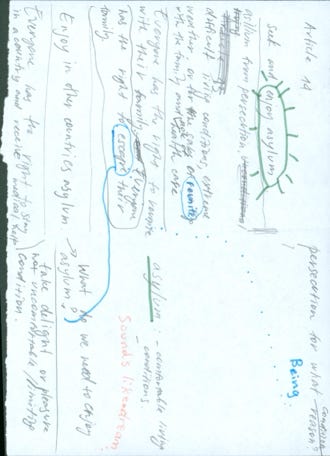 Article 14
Seek and enjoy asylum
asylum from persecution,
difficult living conditions, extreme
weather, or
reunite
with the family and
health care
Everyone has the right to reunite
with their family. Everyone
has the right to escape their
family
Enjoy in other countries asylum
Everyone has the right to stay
in a country and receive medical help
persecution for what reason?
Being:
asylum: - comfortable living
conditions
Sounds like a dream!
→ What do we need to enjoy
asylum?
take delight or pleasure
not uncomfortable
condition.